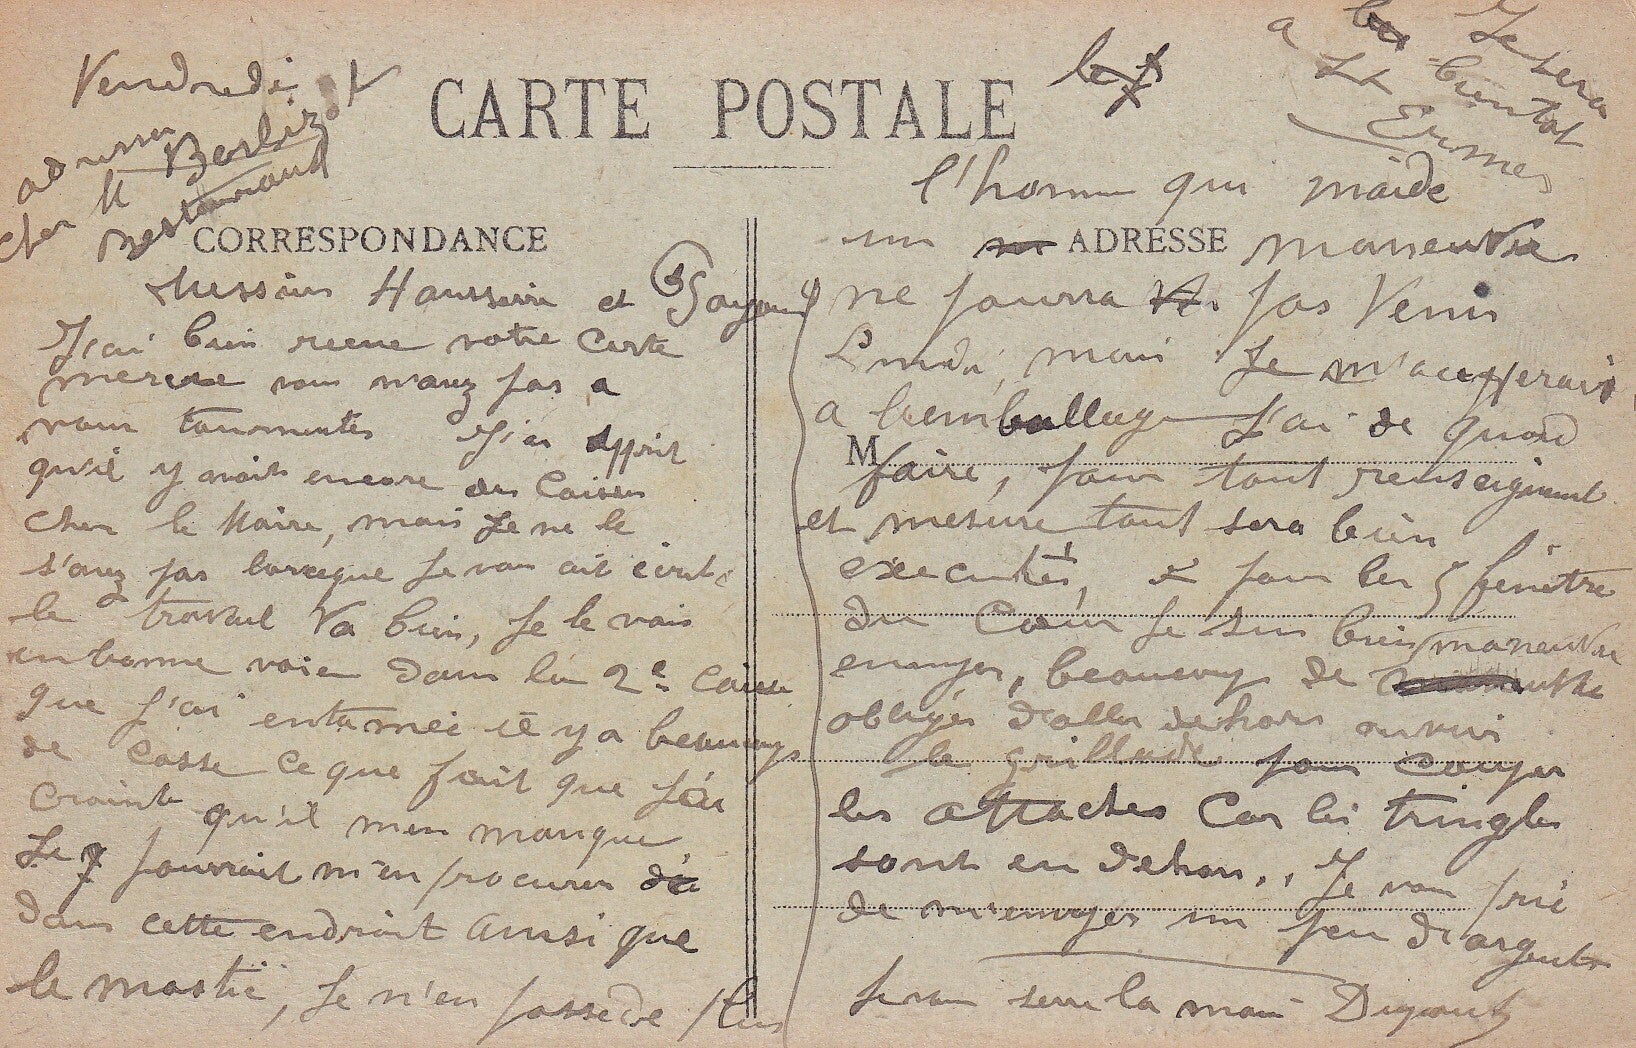 Vendredi
CARTE POSTALE
Je serai
bientot
a
St Ermes
adresser
chez M Barbizot
Restaurand
CORRESPONDANCE
Messieurs Hausserin et
J'ai bien recue votre Carte
vous n'avez pas a
vous tourmenter J'ai apprit
qu'il y avait encore des Caisses
cher le Maire, mais Je ne le
s'avez pas lorseque Je vous ait écrit,
le travail Va bien, Je le vois
en bonne voie dans la 2e Caisse
que j'ai entamée il y a beaucoup
de casse ce que fait que J'ai
crainte qu'il m'en manque
Je pourrait m'en procurer
dans cette endroit ainsi que
le mastic, Je n'en possède plus
l'homme qui m'aide
un ADRESSE maneuvre
ne pourra pas Venir
Lundi, mais Je m'aupperais
a l'emballage J'ai de quoi
M
faire, pour tout renseignement
et mesure tout sera bien
executés, et pour les 5 fenetre
du Coeur Je suis bien
ennuyer, beaucoup de maneuvre
obliger d'aller dehors
le grillade pour couper
les attaches Car les tringles
sont en dehors,, Je vous prie
de m'envoyer un peu d'argent
Je vous serre la main